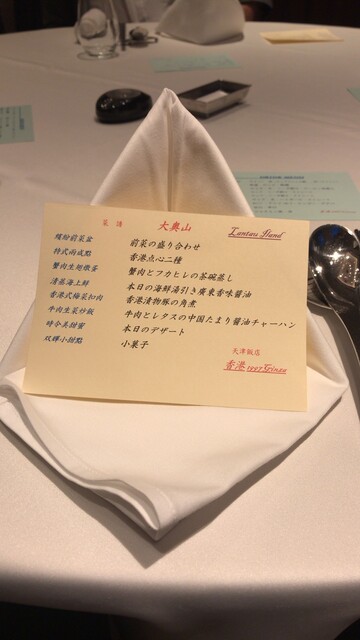 菜譜 大奥山 Lantau Island
繽紛前菜盆 前菜の盛り合わせ
特式兩成點 香港点心二種
蟹肉生翅燉蛋 蟹肉とフカヒレの茶碗蒸し
清蒸海上鮮 本日の海鮮湯引き廣東香味醤油
香港式梅菜扣肉 香港漬物豚の角煮
牛肉生菜炒飯 牛肉とレタスの中国たまり醤油チャーハン
時令美甜蜜 本日のデザート
双輝小甜點 小菓子
天津飯店
香港1997